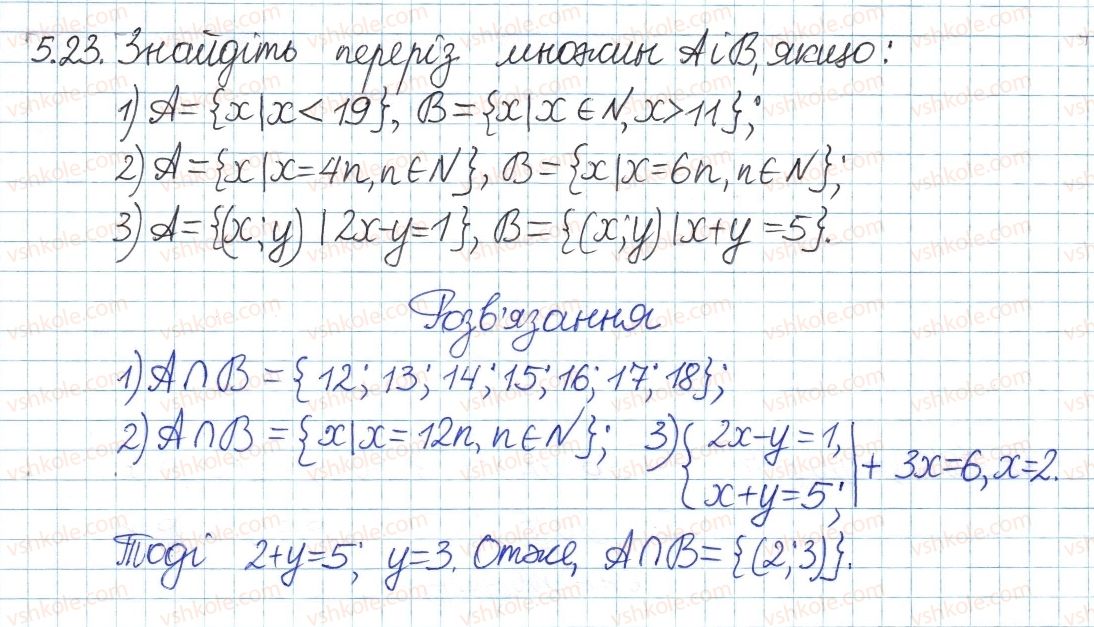 5.23. Знайдіть переріз множин A і B, якщо:
1) A = {x | x < 19}, B = {x | x ∈ N, x > 11};
2) A = {x | x = 4n, n ∈ N}, B = {x | x = 6n, n ∈ N};
3) A = {(x; y) | 2x - y = 1}, B = {(x; y) | x + y = 5}.
Розв'язання
1) A ∩ B = {12; 13; 14; 15; 16; 17; 18};
2) A ∩ B = {x | x = 12n, n ∈ N}; 3) { 2x - y = 1, x + y = 5; | + 3x = 6, x = 2.
Тоді 2 + y = 5; y = 3. Отже, A ∩ B = {(2; 3)}.